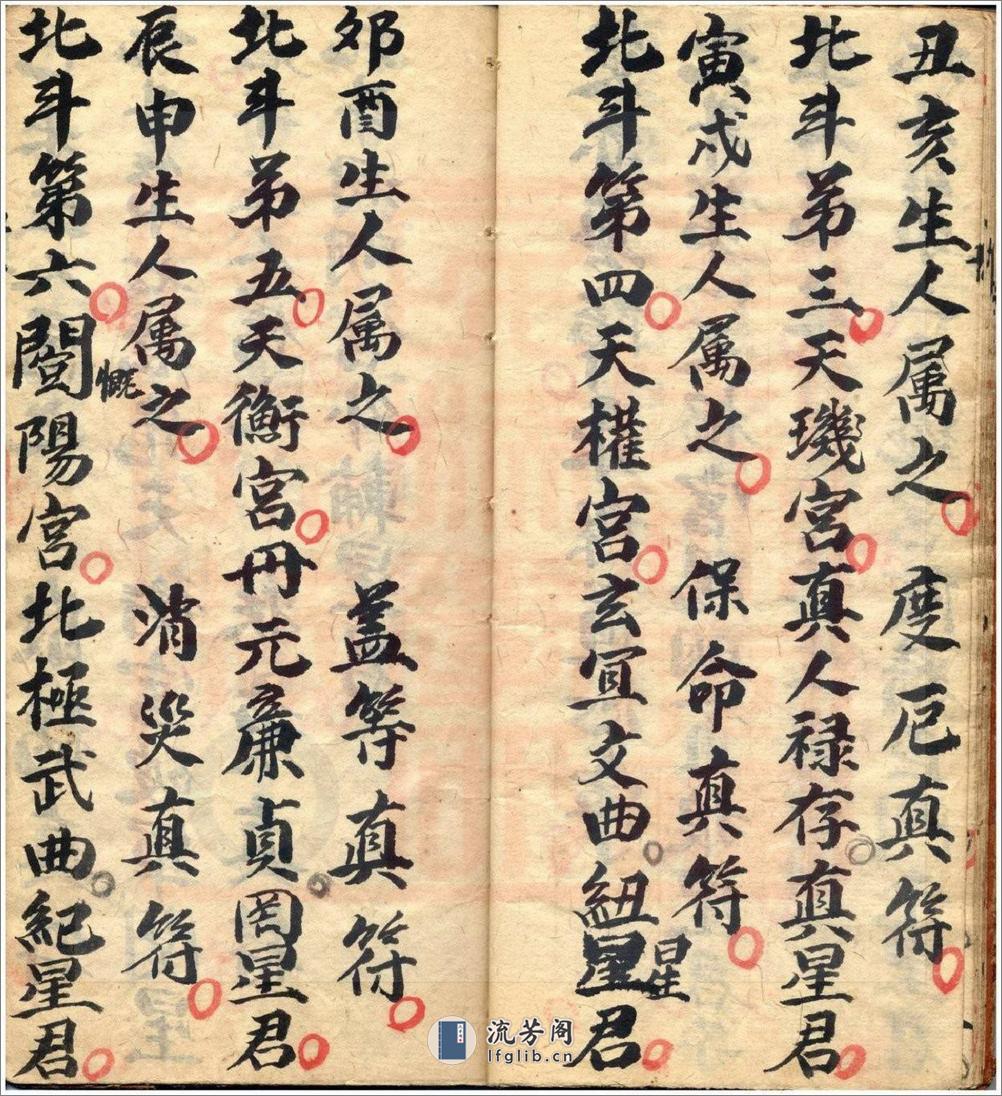 丑亥生人属之度厄真符
北斗弟三天璣宮真人禄存真星君
寅戌生人属之保命真符
北斗第四天權宮玄宜文曲紐星君
星
卯酉生人属之益筭真符
北斗弟五天衡宮丹元廉貞罡星君
辰申生人属之消災真符
北斗第六闓陽宮北極武曲紀星君
概
流芳阁
lfglib.cn